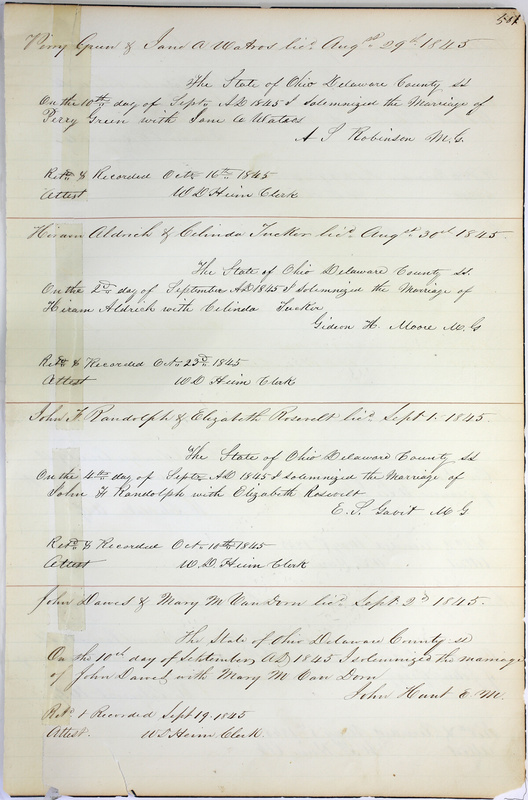 501
Perry Green & Jane A Watros licd. Augst. 29th 1845
The State of Ohio Delaware County ss
On the 10th day of Septr. AD 1845 I solemnized the Marriage of
Perry Green with Jane A Watros
A S Robinson M.G.
Retd. & Recorded Octr. 16th 1845
Attest W D Heim Clerk
Hiram Aldrich & Celinda Tucker licd. Augst. 30th 1845.
The State of Ohio Delaware County ss.
On the 2nd day of September AD 1845 I solemnized the Marriage of
Hiram Aldrich with Celinda Tucker
Gideon H. Moore M.G
Retd. & Recorded Octr. 23rd 1845
Attest W D Heim Clerk
John F. Randolph & Elizabeth Rosevelt licd. Sept. 1. 1845.
The State of Ohio Delaware County ss
On the 4th day of Septr AD 1845 I solemnized the Marriage of
John F Randolph with Elizabeth Rosevelt
E. S. Gavit M G
Retd. & Recorded Octr. 10th 1845
Attest W. D. Heim Clerk
John Dawes & Mary M Van Dorn licd. Sept. 2d 1845.
The State of Ohio Delaware County ss
On the 10th day of September AD 1845 I solemnized the marriage
of John Dawes with Mary M Van Dorn
John Hunt E. M.
Retd. & Recorded Sept 19. 1845
Attest. W D Heim Clerk.